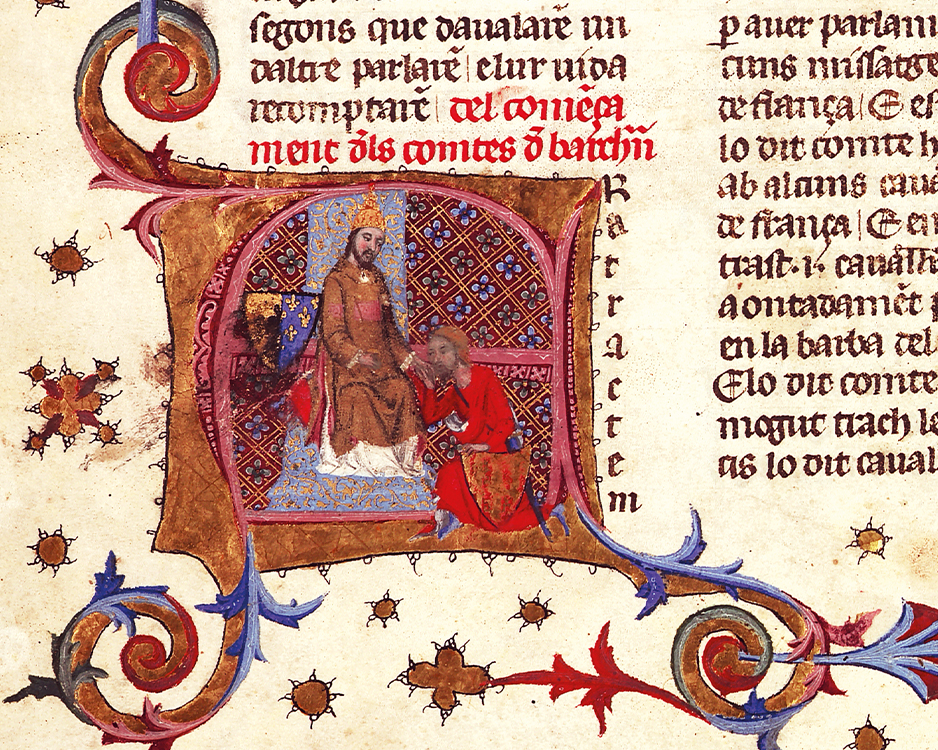 segons que daualarē nn
daltre parlarē elur uida
recomptarē del comēça
ment d̄ls comtes d̄ barchñ
R
a
t
r
a
c
t
e
m
p auer parlam
cuns missatge
de frança E es
lo dit comte h
ab alcuns caua
de frança E en
trast· i· cauall
aontadamēt p
en la barba del
E lo dit comte
mogut trach le
tis lo dit caual